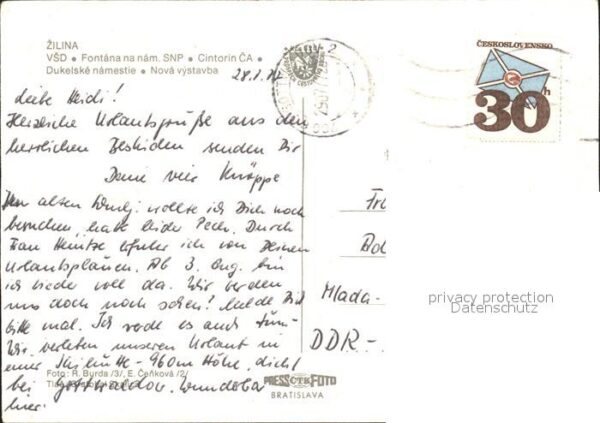 ŽILINA
VŠD • Fontána na nám. SNP • Cintorín ČA •
Dukelské námestie • Nová výstavba
ČESKOSLOVENSKO
30h
Liebe Heidi!
Herzliche Urlaubsgrüße aus den
herrlichen Beskiden senden Dir
Deine vier Knäppe
alten wollte ich Dich noch
besuchen, hatte leider Pech. Durch
Frau Heintze erfuhr ich von Deinen
Urlaubsplänen. Ab 3. Aug. bin
ich wieder voll da. Wir werden
uns doch noch sehen? Melde Dich
bitte mal. Ich es auch tun.
Wir verleben unseren Urlaub in
einer Skihütte - 960m Höhe, dicht
bei Gottwaldov. Wunderbar
hier.
Fr
Mlada-
DDR-
privacy protection
Datenschutz
Foto: R. Burda /3/, E. Čeňková /2/
PRESSFOTO
BRATISLAVA